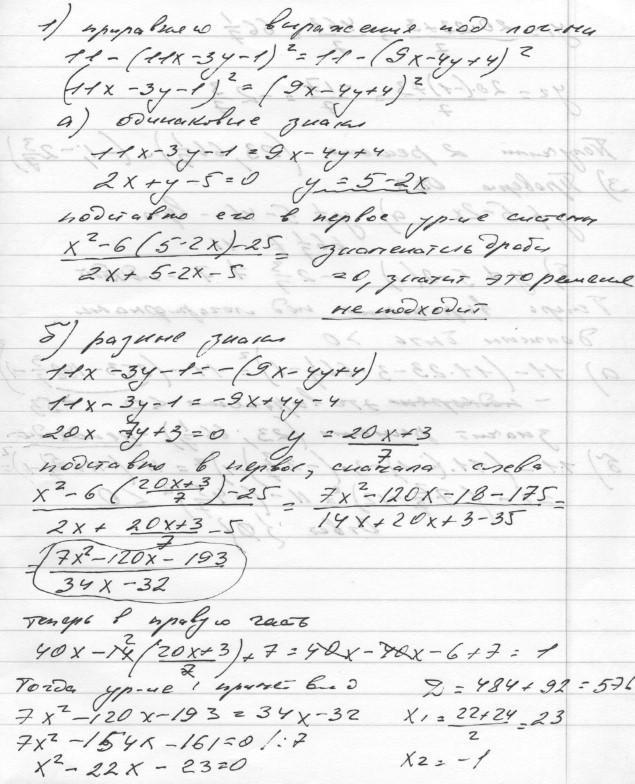 1) приравняем выражения под лог-ми
11-(11x-3y-1)²=11-(9x-4y+4)²
(11x-3y-1)²=(9x-4y+4)²
а) одинаковые знаки
11x-3y-1=9x-4y+4
2x+y-5=0 y=5-2x
подставлю его в первое ур-ие системы
(x²-6(5-2x)-25)/(2x+5-2x-5)= знаменатель дроби
=0, значит это решение
не подходит
б) разные знаки
11x-3y-1=-(9x-4y+4)
11x-3y-1=-9x+4y-4
20x-7y+3=0 y=(20x+3)/7
подставлю в первое, сначала слева
(x²-6((20x+3)/7)-25)/(2x+(20x+3)/7-5)=(7x²-120x-18-175)/(14x+20x+3-35)=
=(7x²-120x-193)/(34x-32)
теперь в правую часть
40x-14((20x+3)/7)+7=40x-40x-6+7=1
Тогда ур-ие примет вид D=484+92=576
7x²-120x-193=34x-32 x₁=(22+24)/2=23
7x²-154x-161=0 /:7
x²-22x-23=0 x₂=-1